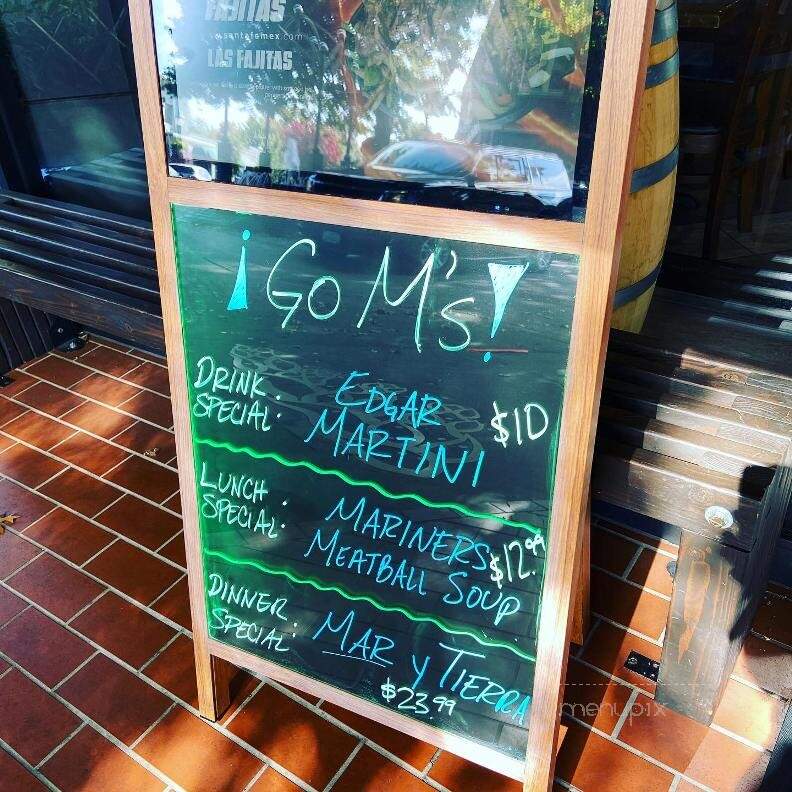 FAJITAS
LAS FAJITAS
¡Go M's!
DRINK SPECIAL: EDGAR MARTINI $10
LUNCH SPECIAL: MARINERS MEATBALL SOUP $12.99
DINNER SPECIAL: MAR Y TIERRA
$23.99
menupix